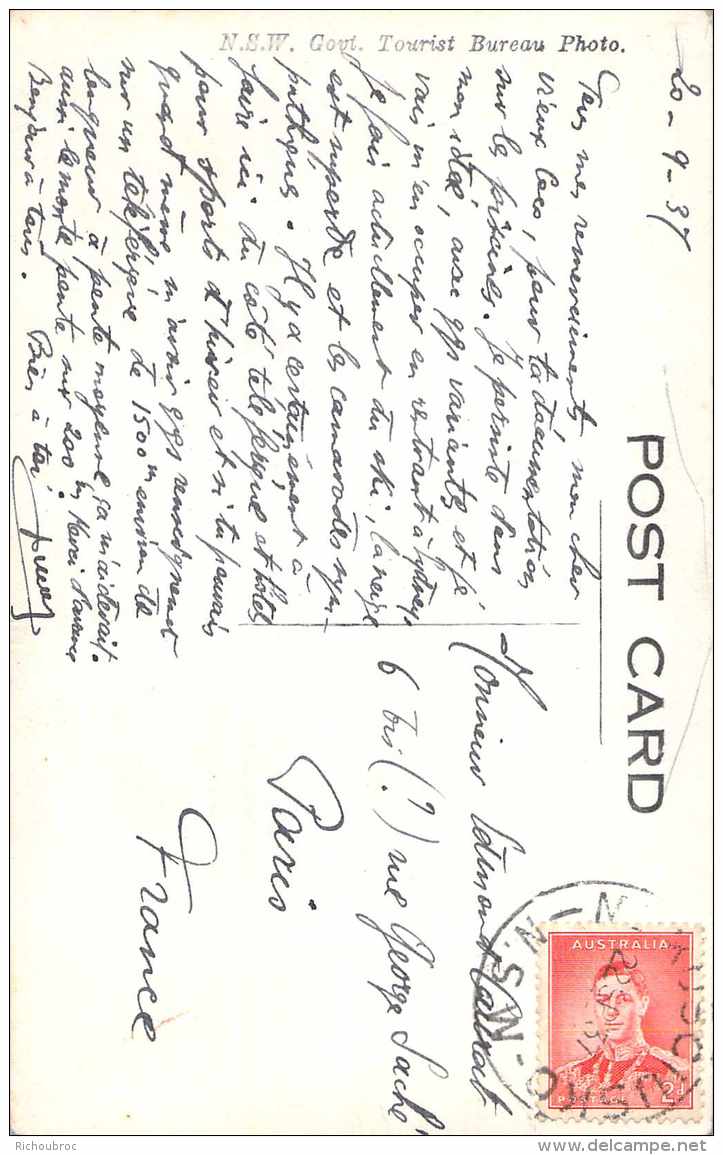 N.S.W. Govt. Tourist Bureau Photo.
20-9-37
POST CARD
Tous mes remerciements, mon cher
vieux, pour ta documentation
sur les patinoires. Je persiste dans
mon idée, avec qqs variantes et je
vais m'en occuper en rentrant à Sydney.
Je fais actuellement du ski, la neige
est superbe et les camarades sym-
pathiques. Il y a certainement à
faire ici du côté téléférique et hôtel
pour sports d'hiver et si tu pouvais
quand même m'avoir qqs renseignements
sur un téléférique de 1500 m environ de
longueur à pente moyenne, ça m'aiderait
aussi le monte pente sur 200 m. Merci d'avance
Bonjour à tous. Bien à toi.
Monsieur Edmond
6 bis (?) rue George Sache
Paris
France
AUSTRALIA
POSTAGE
2d
N.S.W
Richoubroc
delcampe.net